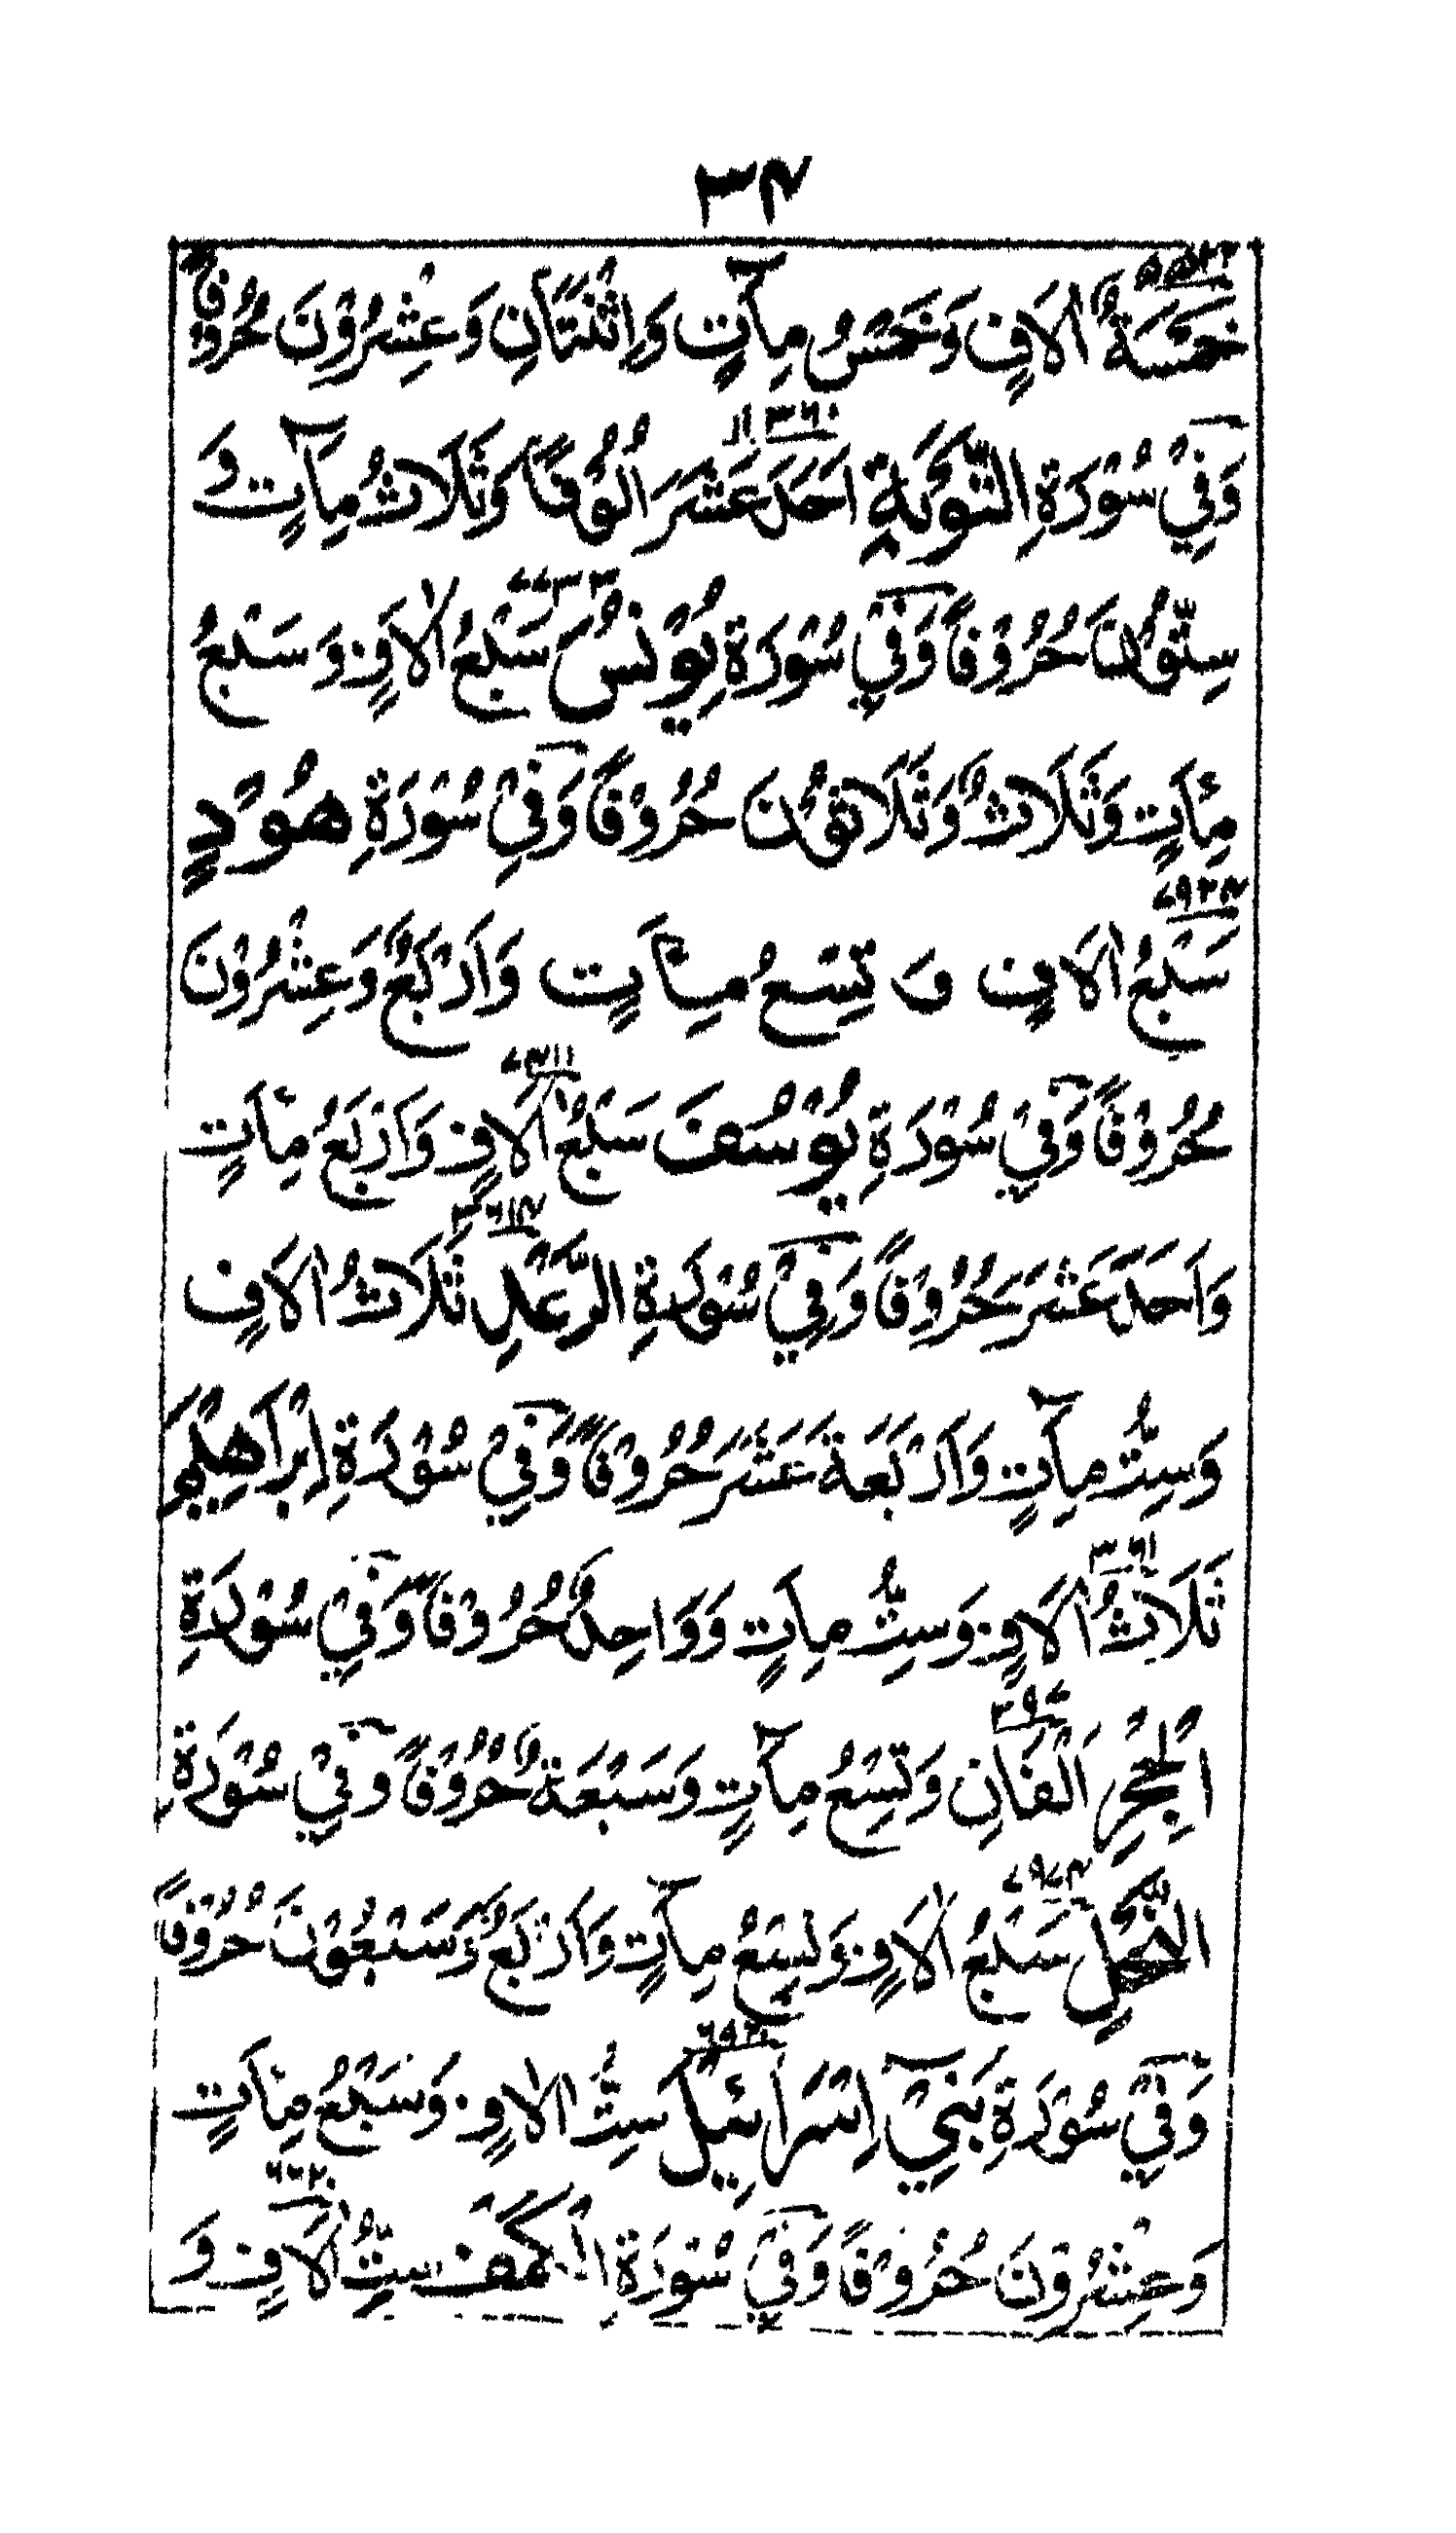 ٣٤
٥٥٢٢
خَمْسَةُ اٰلَافٍ وَخَمْسُ مِاٰتٍ وَاِثْنَتَانِ وَعِشْرُوْنَ حُرُوْفًا
١١٣٦٠
وَفِيْ سُوْرَةِ التَّوْبَةِ اَحَدَ عَشَرَ اُلُوْفًا وَثَلَاثُ مِاٰتٍ وَ
٧٧٣٣
سِتُّوْنَ حُرُوْفًا وَفِيْ سُوْرَةِ يُوْنُسَ سَبْعُ اٰلَافٍ وَسَبْعُ
مِاٰتٍ وَثَلَاثٌ وَثَلَاثُوْنَ حُرُوْفًا وَفِيْ سُوْرَةِ هُوْدٍ
٧٩٢٤
سَبْعُ اٰلَافٍ وَ تِسْعُ مِاٰتٍ وَاَرْبَعٌ وَعِشْرُوْنَ
٧٤١١
حُرُوْفًا وَفِيْ سُوْرَةِ يُوْسُفَ سَبْعُ اٰلَافٍ وَاَرْبَعُ مِاٰتٍ
٣٦١٤
وَاَحَدَ عَشَرَ حُرُوْفًا وَفِيْ سُوْرَةِ الرَّعْدِ ثَلَاثُ اٰلَافٍ
وَسِتُّ مِاٰتٍ وَاَرْبَعَةَ عَشَرَ حُرُوْفًا وَفِيْ سُوْرَةِ اِبْرَاهِيْمَ
٣٦١
ثَلَاثُ اٰلَافٍ وَسِتُّ مِاٰتٍ وَوَاحِدٌ حُرُوْفًا وَفِيْ سُوْرَةِ
٢٩٧
الْحِجْرِ اَلْفَانِ وَتِسْعُ مِاٰتٍ وَسَبْعَةٌ حُرُوْفًا وَفِيْ سُوْرَةِ
٧٩٧٤
النَّحْلِ سَبْعُ اٰلَافٍ وَتِسْعُ مِاٰتٍ وَاَرْبَعٌ وَسَبْعُوْنَ حُرُوْفًا
وَفِيْ سُوْرَةِ بَنِيْ اِسْرَائِيْلَ سِتُّ اٰلَافٍ وَسَبْعُ مِاٰتٍ
٦٦٢٠
وَعِشْرُوْنَ حُرُوْفًا وَفِيْ سُوْرَةِ الْكَهْفِ سِتُّ اٰلَافٍ وَ